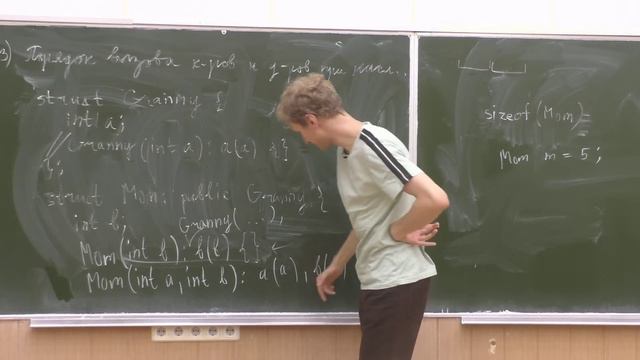 3) Порядок вызова к-ров и д-ров при насл...
struct Granny {
int a;
Granny(int a): a(a) {}
};
struct Mom: public Granny {
int b; Granny( ),
Mom(int b): b(b) {}
Mom(int a, int b): a(a), b(
sizeof(Mom)
Mom m = 5;